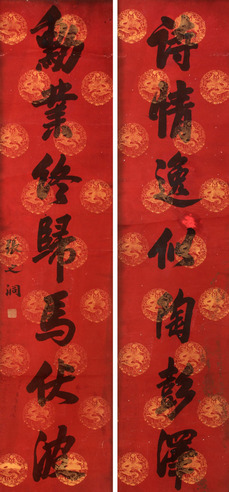 詩情逸似陶彭澤
勳業終歸馬伏波
張之洞